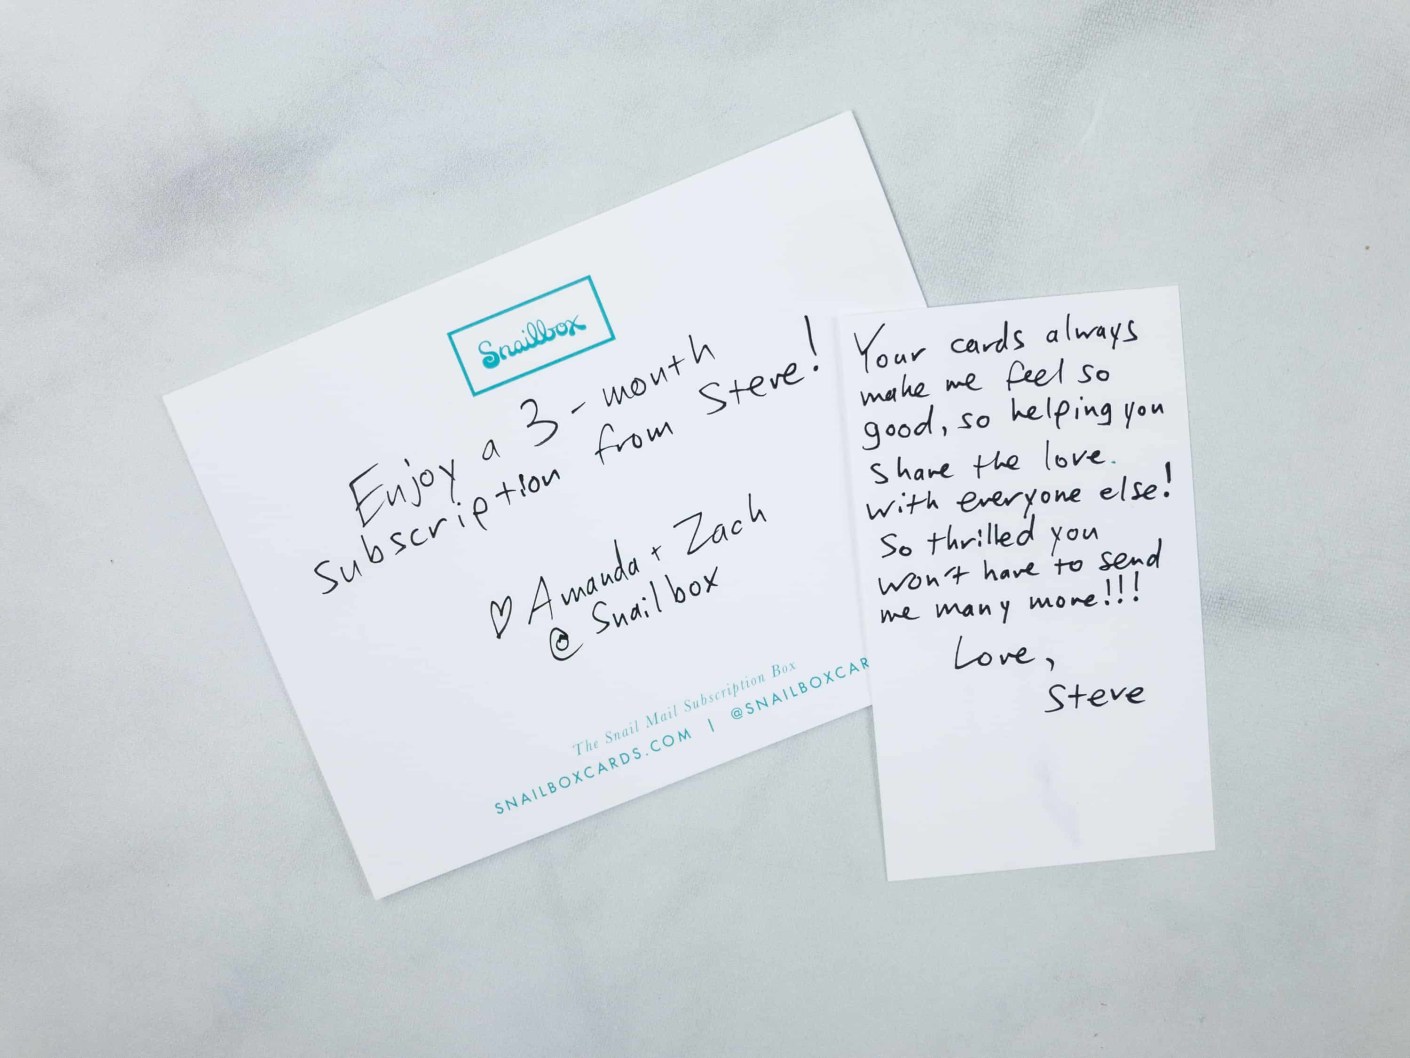 Snailbox
Enjoy a 3-month
subscription from Steve!
♡ Amanda + Zach
@ Snailbox
The Snail Mail Subscription Box
SNAILBOXCARDS.COM | @SNAILBOXCAR
Your cards always
make me feel so
good, so helping you
share the love.
with everyone else!
So thrilled you
won't have to send
me many more!!!
Love,
Steve